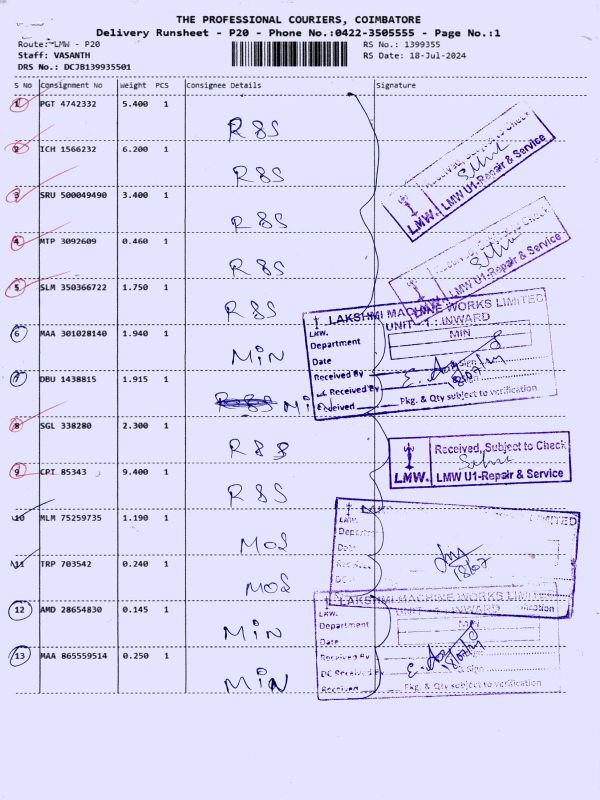 THE PROFESSIONAL COURIERS, COIMBATORE
Delivery Runsheet - P20 - Phone No.:0422-3505555 - Page No.:1
Route: LMW - P20 RS No.: 1399355
Staff: VASANTH RS Date: 18-Jul-2024
DRS No.: DCJB139935501
S No Consignment No Weight PCS Consignee Details Signature
1 PGT 4742332 5.400 1 R&S
2 ICH 1566232 6.200 1 R&S
3 SRU 500049490 3.400 1 R&S
4 MTP 3092609 0.460 1 R&S
5 SLM 350366722 1.750 1 R&S
6 MAA 301028140 1.940 1 MiN
7 DBU 1438815 1.915 1 MiN
8 SGL 338280 2.300 1 R&S
9 CPT 85343 9.400 1 R&S
10 MLM 75259735 1.190 1 MOS
11 TRP 703542 0.240 1 MOS
12 AMD 28654830 0.145 1 MiN
13 MAA 865559514 0.250 1 MiN
Received, Subject to Check
LMW. LMW U1-Repair & Service
Received, Subject to Check
LMW U1-Repair & Service
LAKSHMI MACHINE WORKS LIMITED
LMW. UNIT - 1 : INWARD
Department MIN
Date
Received By
Received By
Received Pkg. & Qty subject to verification
18/07/24
Received, Subject to Check
LMW. LMW U1-Repair & Service
LIMITED
LMW.
18/07
LAKSHMI MACHINE WORKS LIMITED
LMW. UNIT - 1 : INWARD
Department MIN
Date
Received By
DC Received By Sign
Received Pkg. & Qty subject to verification
18/07/24